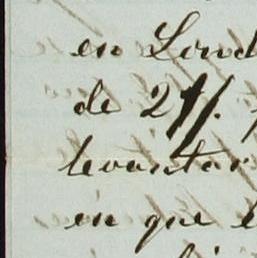 en Lond
de 21/.
levantar
en que e